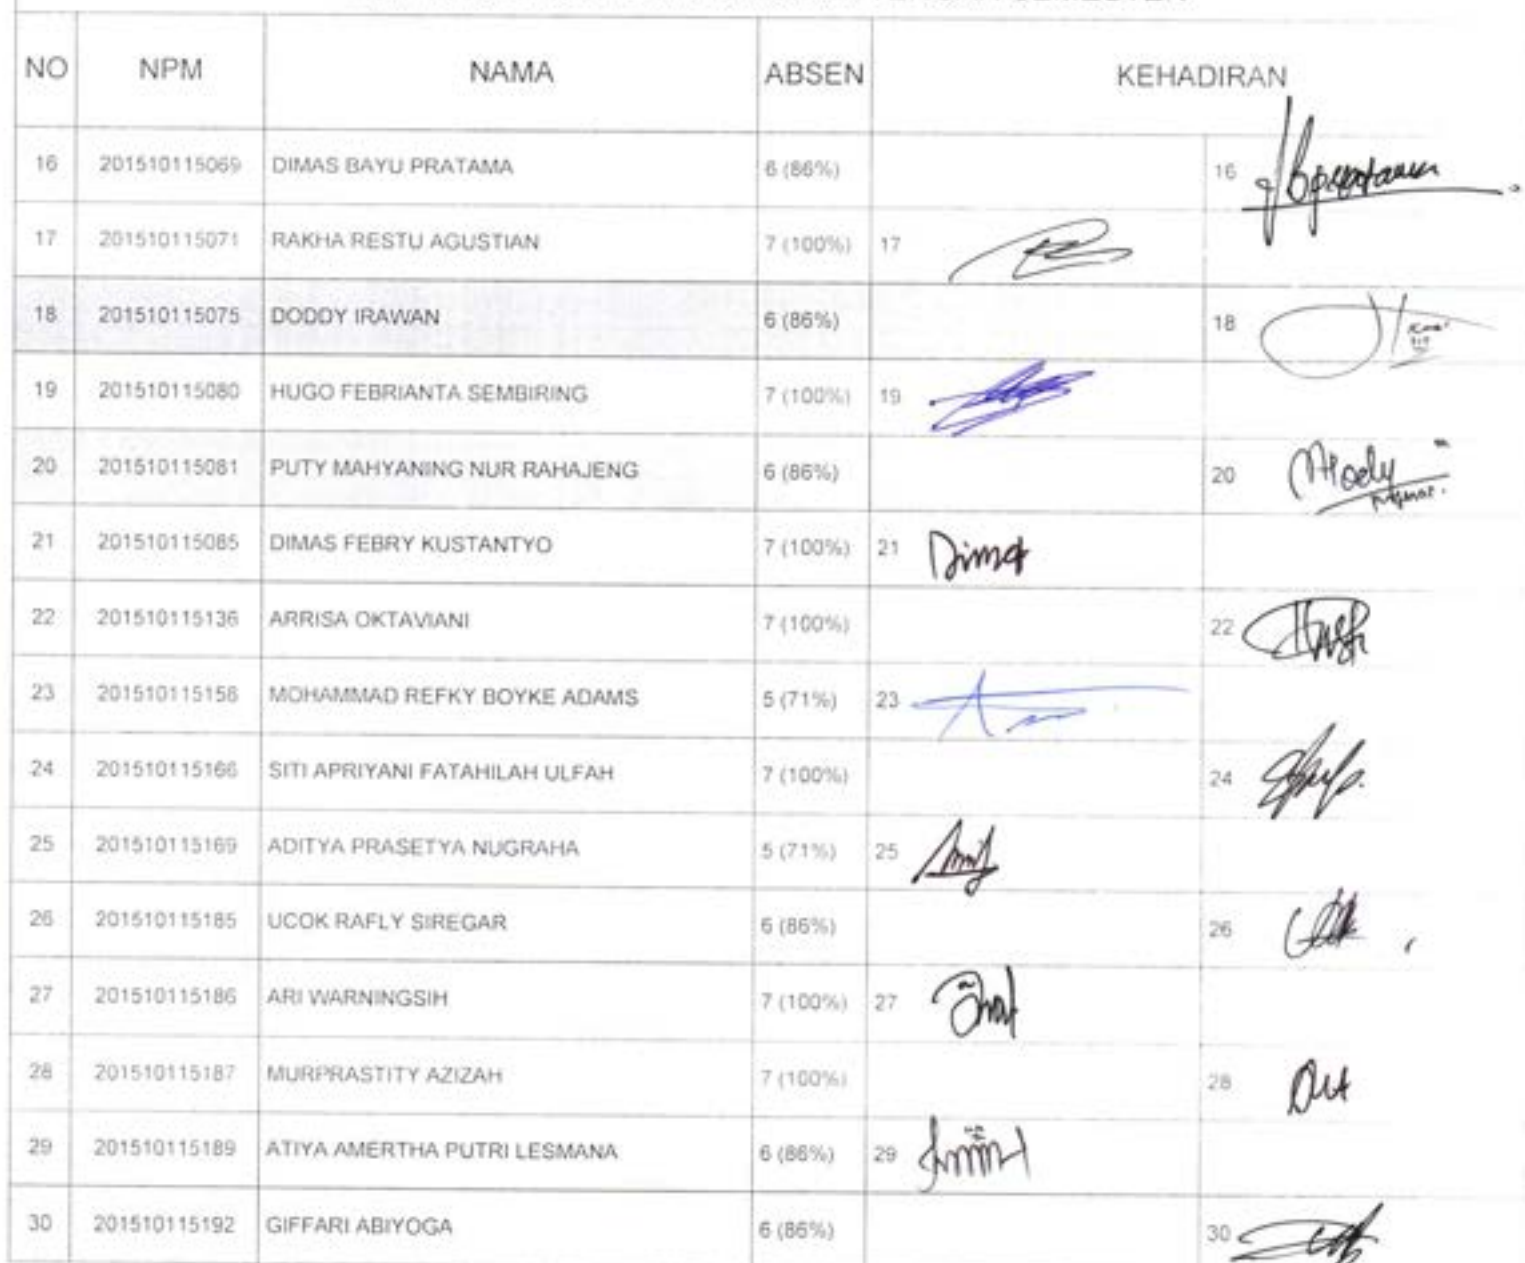 NO NPM NAMA ABSEN KEHADIRAN
16 201510115069 DIMAS BAYU PRATAMA 6 (86%) 16
17 201510115071 RAKHA RESTU AGUSTIAN 7 (100%) 17
18 201510115075 DODDY IRAWAN 6 (86%) 18
19 201510115080 HUGO FEBRIANTA SEMBIRING 7 (100%) 19
20 201510115081 PUTY MAHYANING NUR RAHAJENG 6 (86%) 20
21 201510115085 DIMAS FEBRY KUSTANTYO 7 (100%) 21 Dimas
22 201510115136 ARRISA OKTAVIANI 7 (100%) 22
23 201510115158 MOHAMMAD REFKY BOYKE ADAMS 5 (71%) 23
24 201510115166 SITI APRIYANI FATAHILAH ULFAH 7 (100%) 24
25 201510115169 ADITYA PRASETYA NUGRAHA 5 (71%) 25
26 201510115185 UCOK RAFLY SIREGAR 6 (86%) 26
27 201510115186 ARI WARNINGSIH 7 (100%) 27
28 201510115187 MURPRASTITY AZIZAH 7 (100%) 28
29 201510115189 ATIYA AMERTHA PUTRI LESMANA 6 (86%) 29
30 201510115192 GIFFARI ABIYOGA 6 (86%) 30